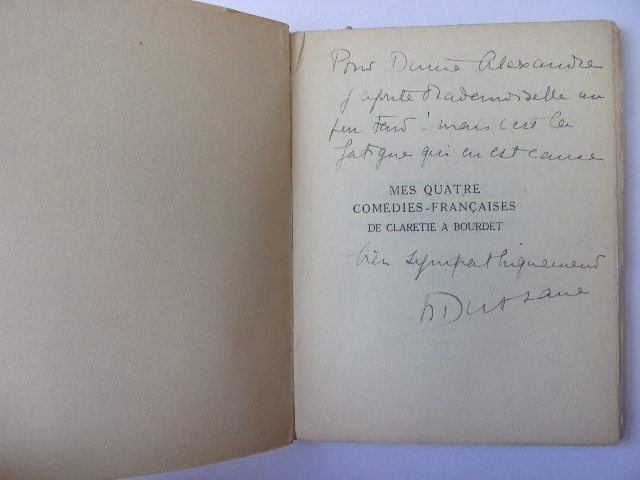 Pour Danie Alexandre
j'ajoute Mademoiselle un
peu tard ! mais c'est la
fatigue qui en est cause
MES QUATRE
COMÉDIES-FRANÇAISES
DE CLARETIE A BOURDET
bien sympathiquement
Dussane